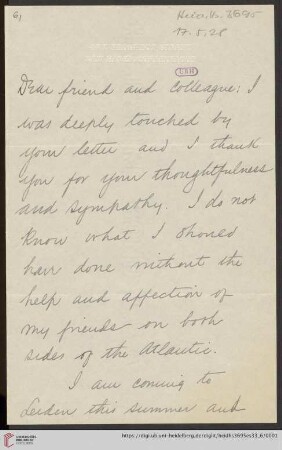 6)
Heid. Hs. 3695
17.5.28
Dear friend and colleague: I
was deeply touched by
your letter and I thank
you for your thoughtfulness
and sympathy. I do not
know what I should
have done without the
help and affection of
my friends on both
sides of the Atlantic.
I am coming to
Leiden this summer and